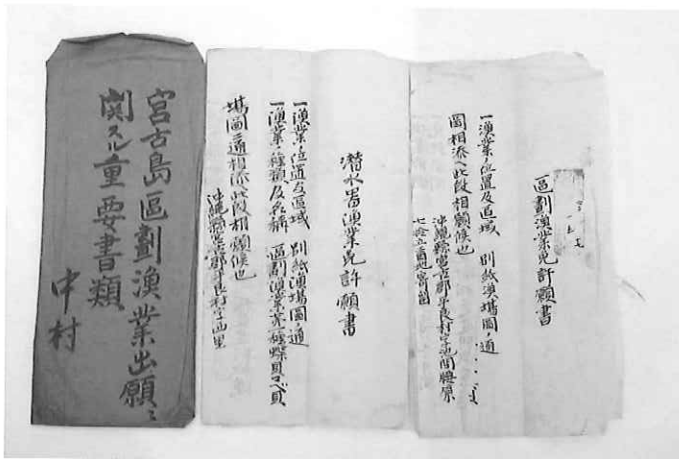 區劃漁業免許願書
一漁業ノ位置及區域 別紙漁場圖ノ通
圖相添ヘ此段相願候也
沖繩縣宮古郡平良村字池間
七拾五番地寄留
潜水器漁業免許願書
一漁業ノ位置及區域 別紙漁場圖ノ通
一漁業ノ種類及名稱 區劃漁業第一種蝶貝
場圖二通相添ヘ此段相願候也
沖繩縣宮古郡平良村字西里
宮古島區劃漁業出願ニ
関スル重要書類
中村